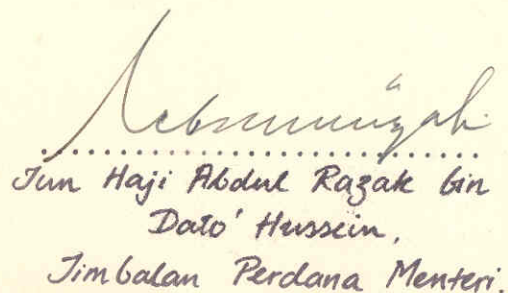 Tun Haji Abdul Razak bin
Dato' Hussein,
Timbalan Perdana Menteri.